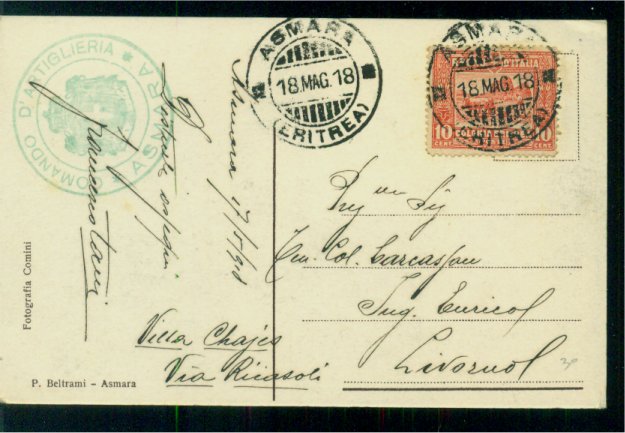 COMANDO D'ARTIGLIERIA ★ ASMARA
ASMARA
18.MAG.18
(ERITREA)
ASMARA
18.MAG.18
(ERITREA)
D'ITALIA
10 10
CENT. CENT.
Asmara 17/5/918
Distinti ossequi
Preg mo Sig
Ten. Col.
Ing. Enrico
Livorno
Villa Chajes
Via Ricasoli
Fotografia Comini
P. Beltrami - Asmara